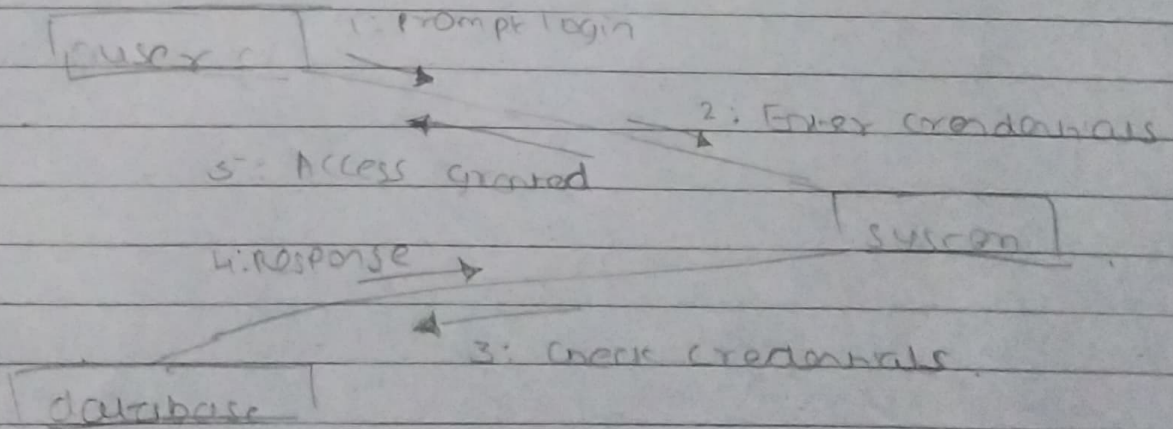 1: Prompt login
user
2: Enter credentials
5: Access Granted
system
4: Response
3: Check credentials
database